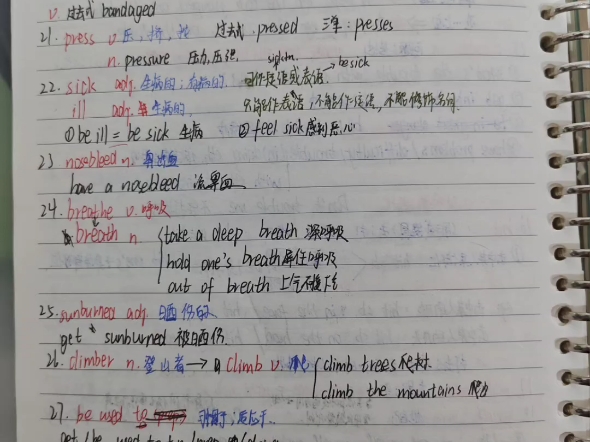 v. 过去式 bandaged
21. press v. 压，挤，按 过去式.pressed 三单：presses
n. pressure 压力,压迫.
22. sick adj. 生病的；有病的. 可作定语或表语. → be sick
ill adj. 生病的, 只能作表语，不能作定语, 不能修饰名词.
①be ill = be sick 生病 ② feel sick 感到恶心
23 nosebleed n. 鼻出血
have a nosebleed 流鼻血
24. breathe v. 呼吸
breath n. take a deep breath 深呼吸
hold one's breath 屏住呼吸
out of breath 上气不接下气
25. sunburned adj. 晒伤的
get sunburned 被晒伤.
26. climber n. 登山者 → climb v. 爬 climb trees 爬树
climb the mountains 爬山
27. be used to 习惯于；适应于..